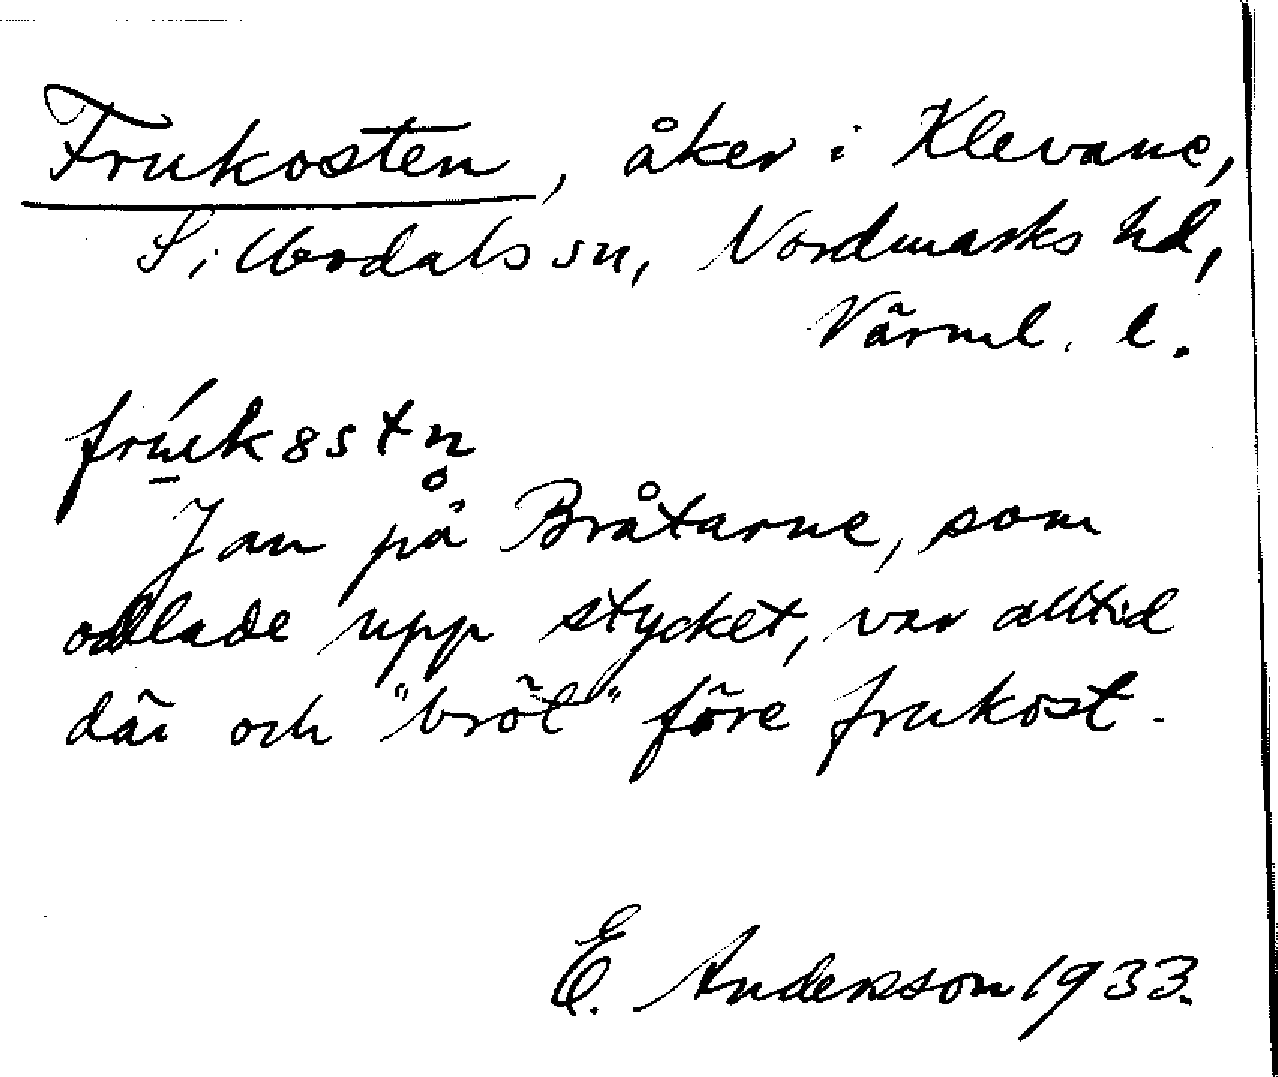 Frukosten, åker i Klevane,
Sillbodals sn, Nordmarks hd,
Värml. l.
frúk8stn̥
Jan på Bråtarne, som
odlade upp stycket, var alltid
där och "bröt" före frukost.
E. Anderson 1933.